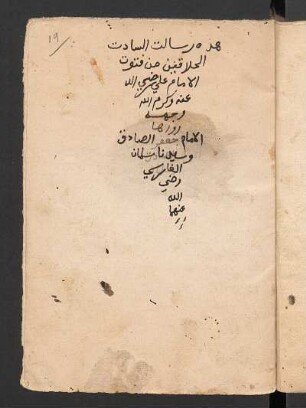 19
هده رسالت السادت
الحلاقين من فتوت
الامام علي رضي الله
عنه وكرم الله
وجهه
رواها
الامام جعفر الصادق
وسيدنا سلمان
الفارسي
رضي
الله
عنهما